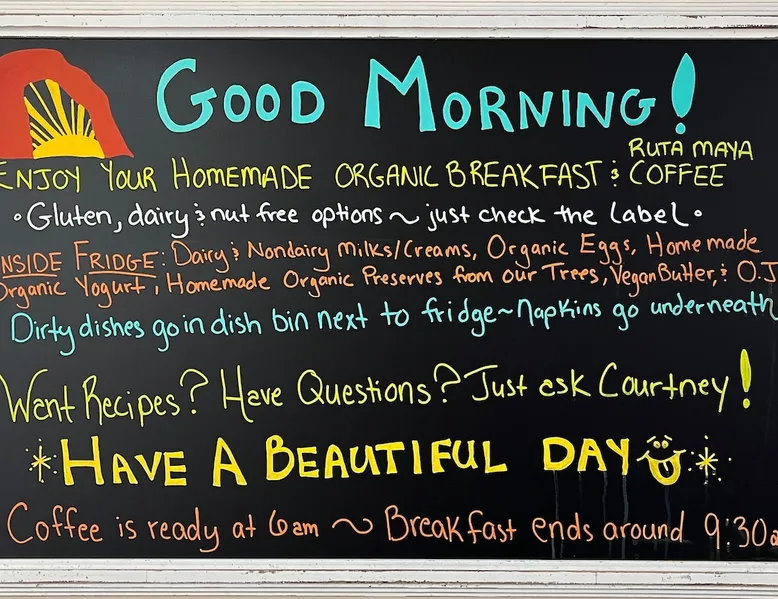 GOOD MORNING!
RUTA MAYA
ENJOY YOUR HOMEMADE ORGANIC BREAKFAST & COFFEE
• Gluten, dairy & nut free options ~ just check the label •
INSIDE FRIDGE: Dairy & Nondairy Milks/Creams, Organic Eggs, Homemade
Organic Yogurt, Homemade Organic Preserves from our Trees, Vegan Butter, & O.J
Dirty dishes go in dish bin next to fridge ~ Napkins go underneath
Want Recipes? Have Questions? Just ask Courtney!
*HAVE A BEAUTIFUL DAY *
Coffee is ready at 6am ~ Breakfast ends around 9:30a